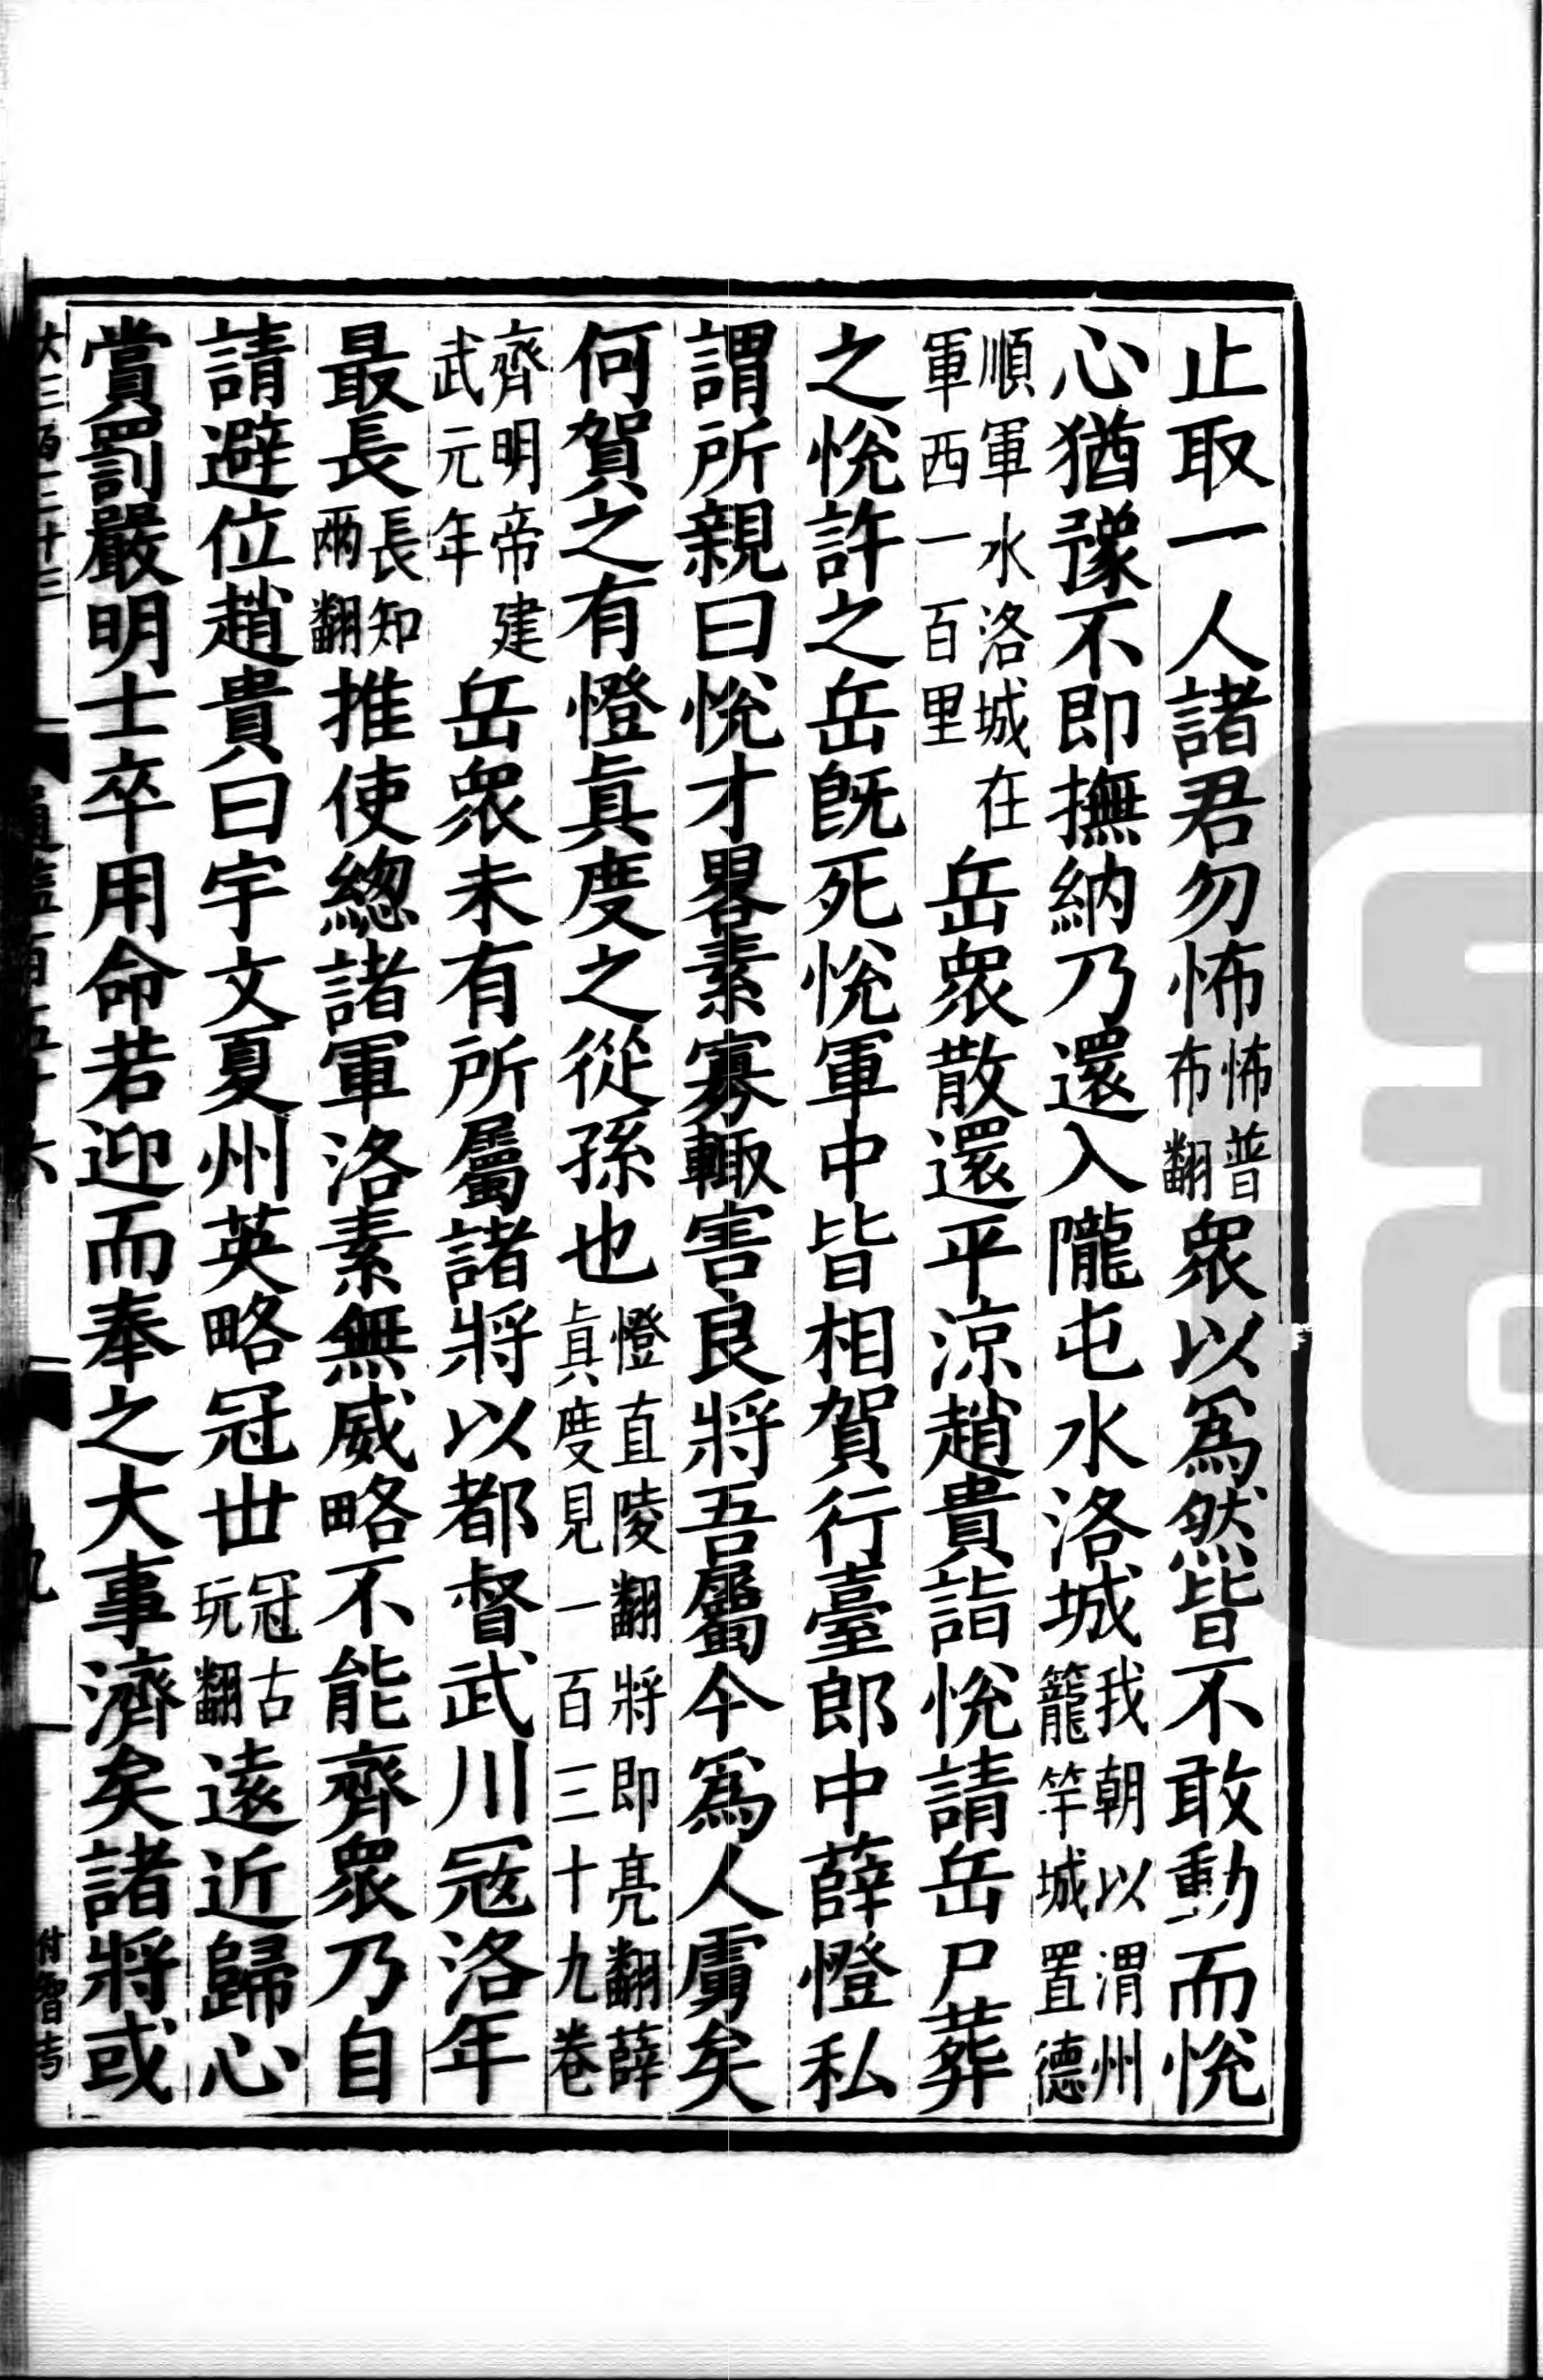 止取一人諸君勿怖怖普布翻衆以爲然皆不敢動而悅
心猶豫不即撫納乃還入隴屯水洛城我朝以渭州籠竿城置德
順軍水洛城在軍西一百里岳衆散還平涼趙貴詣悅請岳尸葬
之悅許之岳旣死悅軍中皆相賀行臺郎中薛憕私
謂所親曰悅才畧素寡輙害良將吾屬今爲人虜矣
何賀之有憕眞度之從孫也憕直陵翻將即亮翻薛眞度見一百三十九卷
齊明帝建武元年岳衆未有所屬諸將以都督武川寇洛年
最長長知兩翻推使緫諸軍洛素無威略不能齊衆乃自
請避位趙貴曰宇文夏州英略冠世冠古玩翻遠近歸心
賞罰嚴明士卒用命若迎而奉之大事濟矣諸將或